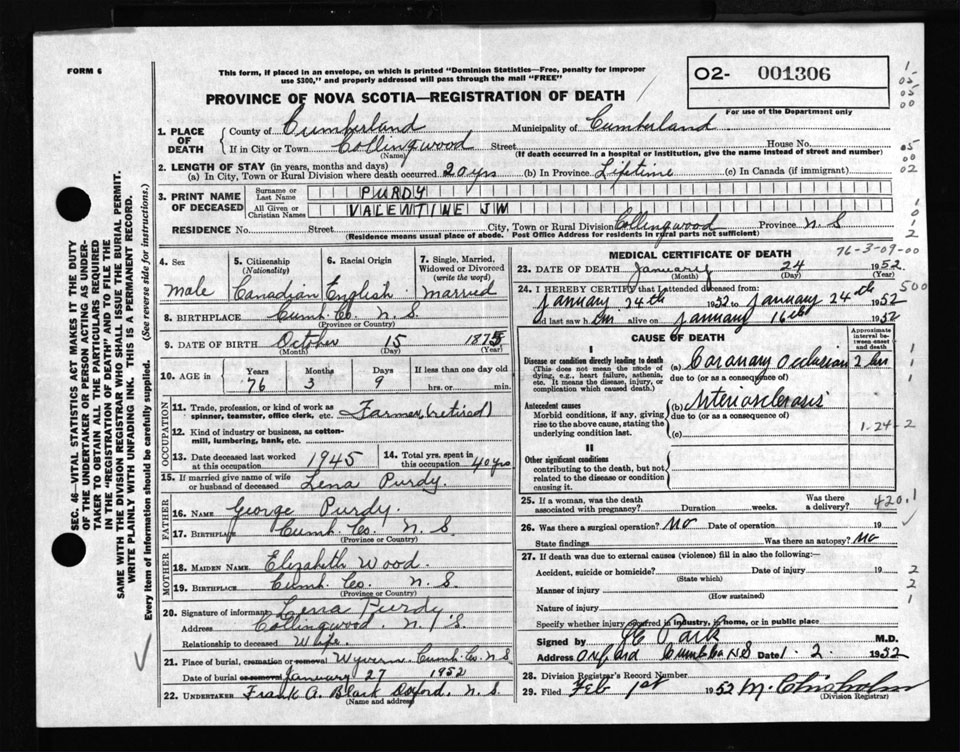 FORM 6
This form, if placed in an envelope, on which is printed "Dominion Statistics—Free, penalty for improper
use $300," and properly addressed will pass through the mail "FREE"
O2- 001306
For use of the Department only
PROVINCE OF NOVA SCOTIA—REGISTRATION OF DEATH
1. PLACE OF DEATH
County of Cumberland Municipality of Cumberland
If in City or Town Collingwood Street House No.
(Name) (If death occurred in a hospital or institution, give the name instead of street and number)
2. LENGTH OF STAY (in years, months and days)
(a) In City, Town or Rural Division where death occurred 20 yrs (b) In Province Lifetime (c) In Canada (if immigrant)
3. PRINT NAME OF DECEASED
Surname or Last Name PURDY
All Given or Christian Names VALENTINE JW
RESIDENCE No. Street City, Town or Rural Division Collingwood Province N.S
(Residence means usual place of abode. Post Office Address for residents in rural parts not sufficient)
4. Sex
male
5. Citizenship (Nationality)
Canadian
6. Racial Origin
English
7. Single, Married, Widowed or Divorced (write the word)
married
8. BIRTHPLACE Cumb. Co. N. S.
(Province or Country)
9. DATE OF BIRTH October 15 1875
(Month) (Day) (Year)
10. AGE in
Years Months Days If less than one day old
76 3 9 hrs. or min.
OCCUPATION
11. Trade, profession, or kind of work as spinner, teamster, office clerk, etc. Farmer (retired)
12. Kind of industry or business, as cotton-mill, lumbering, bank, etc.
13. Date deceased last worked at this occupation 1945
14. Total yrs. spent in this occupation 40 yrs
15. If married give name of wife or husband of deceased Lena Purdy.
FATHER
16. Name George Purdy.
17. Birthplace Cumb. Co. N. S
(Province or Country)
MOTHER
18. Maiden Name Elizabeth Wood.
19. Birthplace Cumb. Co. N. S.
(Province or Country)
20. Signature of informant Lena Purdy
Address Collingwood. N. S.
Relationship to deceased Wife.
21. Place of burial, cremation or removal Wyvern. Cumb. Co. N. S
Date of burial or removal January 27 1952
22. Undertaker Frank A. Black Oxford, N. S.
(Name and address)
MEDICAL CERTIFICATE OF DEATH
76-3-09-00
23. DATE OF DEATH January 24 1952
(Month) (Day) (Year)
24. I HEREBY CERTIFY that I attended deceased from:
January 24th 1952 to January 24th 1952
and last saw him alive on January 16th 1952
CAUSE OF DEATH
Approximate interval between onset and death
I
Disease or condition directly leading to death
(This does not mean the mode of dying, e.g., heart failure, asthenia, etc. It means the disease, injury, or complication which caused death.)
(a) Coronary Occlusion 2 hrs
due to (or as a consequence of)
Antecedent causes
Morbid conditions, if any, giving rise to the above cause, stating the underlying condition last.
(b) Arteriosclerosis
due to (or as a consequence of)
(c)
1-24-2
II
Other significant conditions
contributing to the death, but not related to the disease or condition causing it.
25. If a woman, was the death associated with pregnancy? Duration weeks. Was there a delivery?
420.1
26. Was there a surgical operation? No Date of operation 19
State findings Was there an autopsy? No
27. If death was due to external causes (violence) fill in also the following:—
Accident, suicide or homicide? Date of injury 19
(State which)
Manner of injury
(How sustained)
Nature of injury
Specify whether injury occurred in industry, in home, or in public place
Signed by Park M.D.
Address Oxford Cumb Co NS Date 1. 2. 1952
28. Division Registrar's Record Number
29. Filed Feb 1st 1952 M. Chisholm
(Division Registrar)
SEC. 46—VITAL STATISTICS ACT MAKES IT THE DUTY
OF THE UNDERTAKER OR PERSON ACTING AS UNDER-
TAKER TO OBTAIN ALL THE PARTICULARS REQUIRED
IN THE "REGISTRATION OF DEATH" AND TO FILE THE
SAME WITH THE DIVISION REGISTRAR WHO SHALL ISSUE THE BURIAL PERMIT.
WRITE PLAINLY WITH UNFADING INK. THIS IS A PERMANENT RECORD.
Every item of information should be carefully supplied. (See reverse side for instructions.)
1
02
05
00
05
00
02
1
0
1
2
500
1
1
1
2
2
1